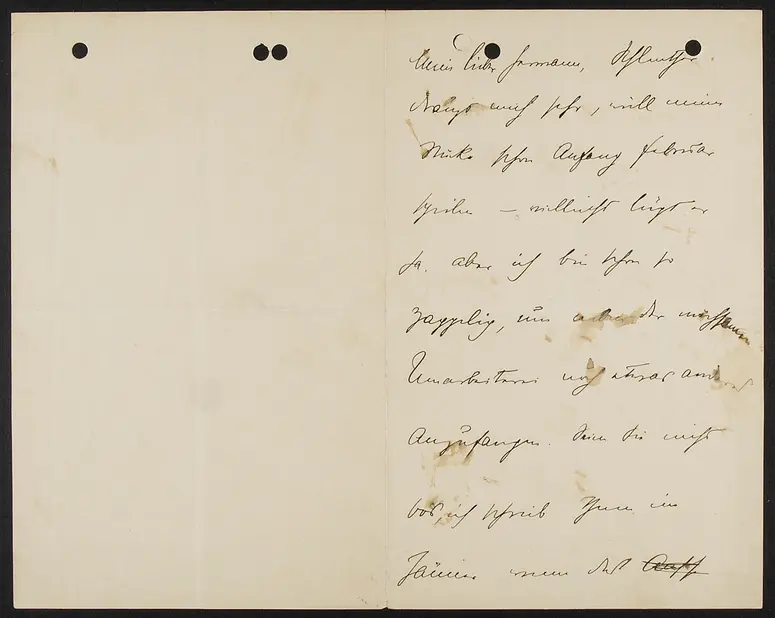 Mein lieber Hermann, Schlenther
drängt mich sehr, will meine
Stücke schon Anfang Februar
spielen – vielleicht lügt er
ja. aber ich bin schon so
zappelig, um neben der mühsamen
Umarbeiterei noch etwas anderes
anzufangen. Seien Sie nicht
bös, ich schreib Ihnen im
Jänner wenn das